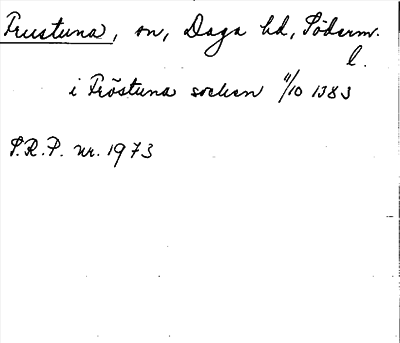 Frustuna, sn, Daga hd, Söderm.
l.
i Fröstuna socken 11/10 1383
S.R.P. nr. 1973